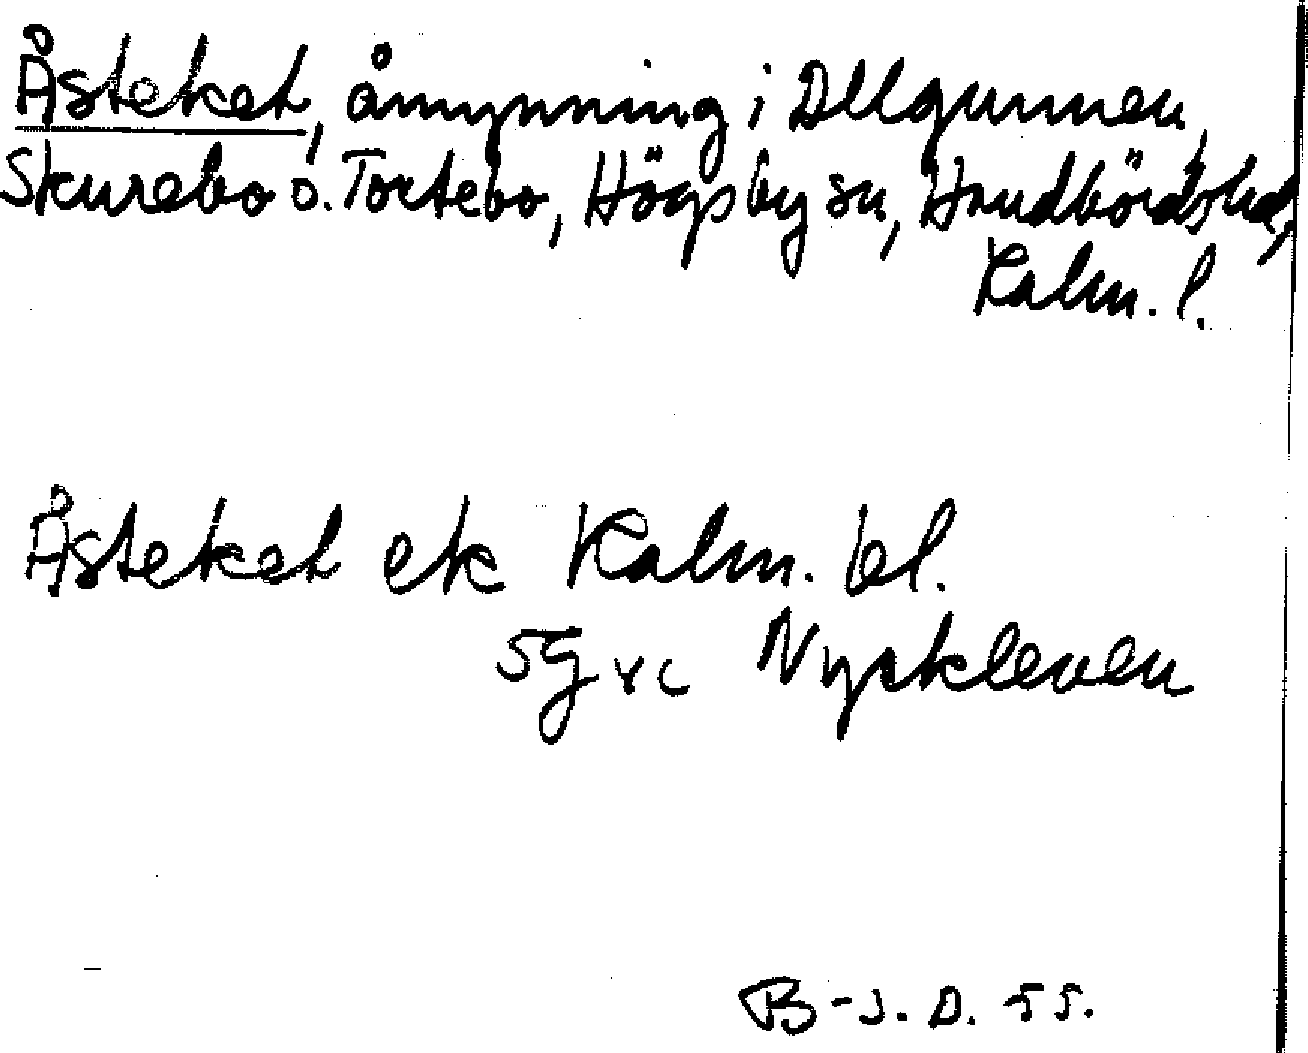 Åsteket, åmynning i Allgunnen,
Skurebo o. Tortebo, Högsby sn, Handbörds hd,
Kalm. l.
Åsteket ek Kalm. bl.
5g vc Nyckleven
B-J. D. 55.